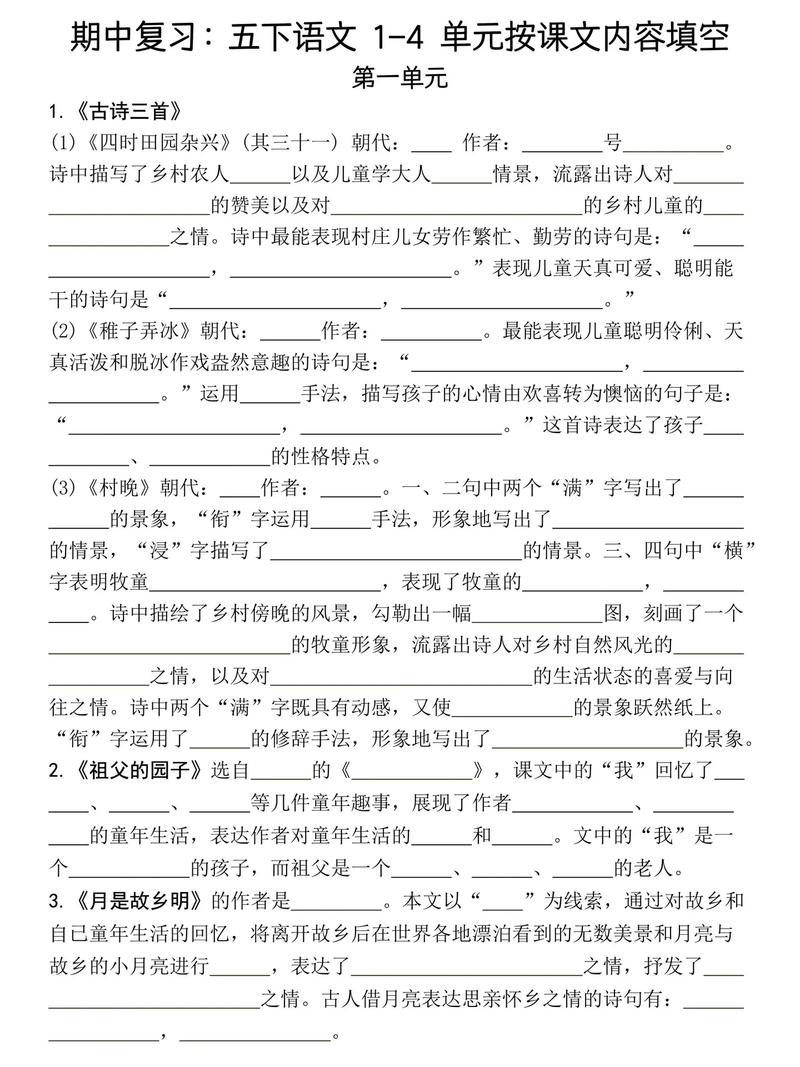 期中复习：五下语文 1-4 单元按课文内容填空
第一单元
1.《古诗三首》
(1)《四时田园杂兴》(其三十一) 朝代：____ 作者：________号__________。
诗中描写了乡村农人______以及儿童学大人______情景，流露出诗人对_______
________________的赞美以及对_________________________的乡村儿童的____
____________之情。诗中最能表现村庄儿女劳作繁忙、勤劳的诗句是：“_____
________________，______________________。”表现儿童天真可爱、聪明能
干的诗句是“_____________________，____________________。”
(2)《稚子弄冰》朝代：______作者：__________。最能表现儿童聪明伶俐、天
真活泼和脱冰作戏盎然意趣的诗句是：“_____________________，__________
___________。”运用______手法，描写孩子的心情由欢喜转为懊恼的句子是：
“_____________________，____________________。”这首诗表达了孩子____
________、____________的性格特点。
(3)《村晚》朝代：____作者：______。一、二句中两个“满”字写出了______
______的景象，“衔”字运用______手法，形象地写出了___________________
的情景，“浸”字描写了_________________________的情景。三、四句中“横”
字表明牧童_______________________，表现了牧童的____________，________
____。诗中描绘了乡村傍晚的风景，勾勒出一幅_____________图，刻画了一个
________________________的牧童形象，流露出诗人对乡村自然风光的_______
__________之情，以及对__________________________的生活状态的喜爱与向
往之情。诗中两个“满”字既具有动感，又使____________的景象跃然纸上。
“衔”字运用了______的修辞手法，形象地写出了___________________的景象。
2.《祖父的园子》选自______的《____________》，课文中的“我”回忆了___
____、______、______等几件童年趣事，展现了作者____________、________
____的童年生活，表达作者对童年生活的______和______。文中的“我”是一
个____________的孩子，而祖父是一个______、______、______的老人。
3.《月是故乡明》的作者是_________。本文以“____”为线索，通过对故乡和
自已童年生活的回忆，将离开故乡后在世界各地漂泊看到的无数美景和月亮与
故乡的小月亮进行______，表达了_______________________之情，抒发了____
_____________________之情。古人借月亮表达思亲怀乡之情的诗句有：______
___________，_______________。